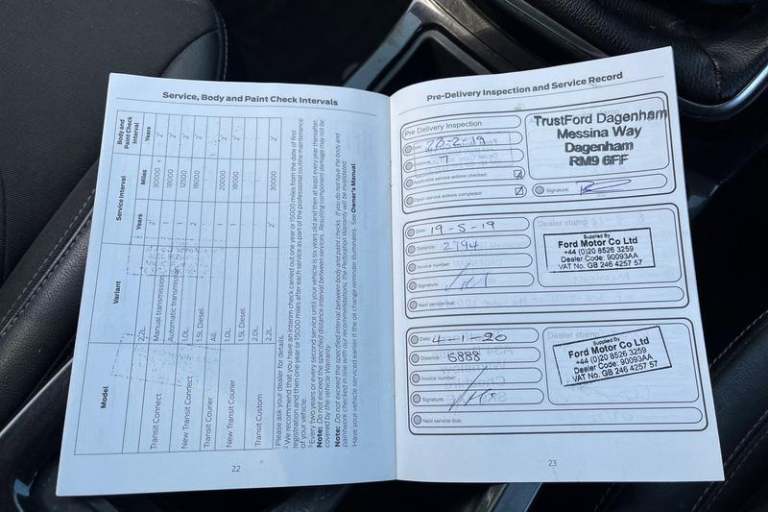 Service, Body and Paint Check Intervals
Model
Variant
Service Interval
Body and Paint Check Interval
Years
Miles
Years
Transit Connect
2.2L
Manual transmission
2
30000
2
Automatic transmission
1
18000
2
New Transit Connect
1.0L
1
12000
2
1.5L Diesel
1
18000
2
Transit Courier
All
New Transit Courier
1.0L
1
20000
2
1.5L Diesel
1
18000
2
Transit Custom
2.0L
2.2L
2
30000
2
Please ask your dealer for details.
We recommend that you have an interim check carried out one year or 15000 miles from the date of first
registration and then one year or 15000 miles after each service as part of the professional routine maintenance
of your vehicle.
Every two years or every second service until your vehicle is six years old and then at least every year thereafter.
Note: Do not exceed the specified distance interval between services. Repairing component damage may not be
covered by the vehicle Warranty.
Note: Do not exceed the specified interval between body and paint checks. If you do not have the body and
paintwork checked in line with our recommendations, the Perforation Warranty will be invalidated.
Have your vehicle serviced earlier if the oil change reminder illuminates. See Owner's Manual.
22
Pre-Delivery Inspection and Service Record
Pre Delivery Inspection
Date 20-2-19
7
Open service actions checked
Open service actions completed
TrustFord Dagenham
Messina Way
Dagenham
RM9 6FF
Signature
Date 19-5-19
Distance 2794
Invoice number
Signature
Next service due:
Dealer stamp
Supplied By
Ford Motor Co Ltd
+44 (0)20 8526 3259
Dealer Code: 90093AA
VAT No. GB 246 4257 57
Date 4-1-20
Distance 6888
Invoice number
Signature
Next service due:
Dealer stamp
Supplied By
Ford Motor Co Ltd
+44 (0)20 8526 3259
Dealer Code: 90093AA
VAT No. GB 246 4257 57
23